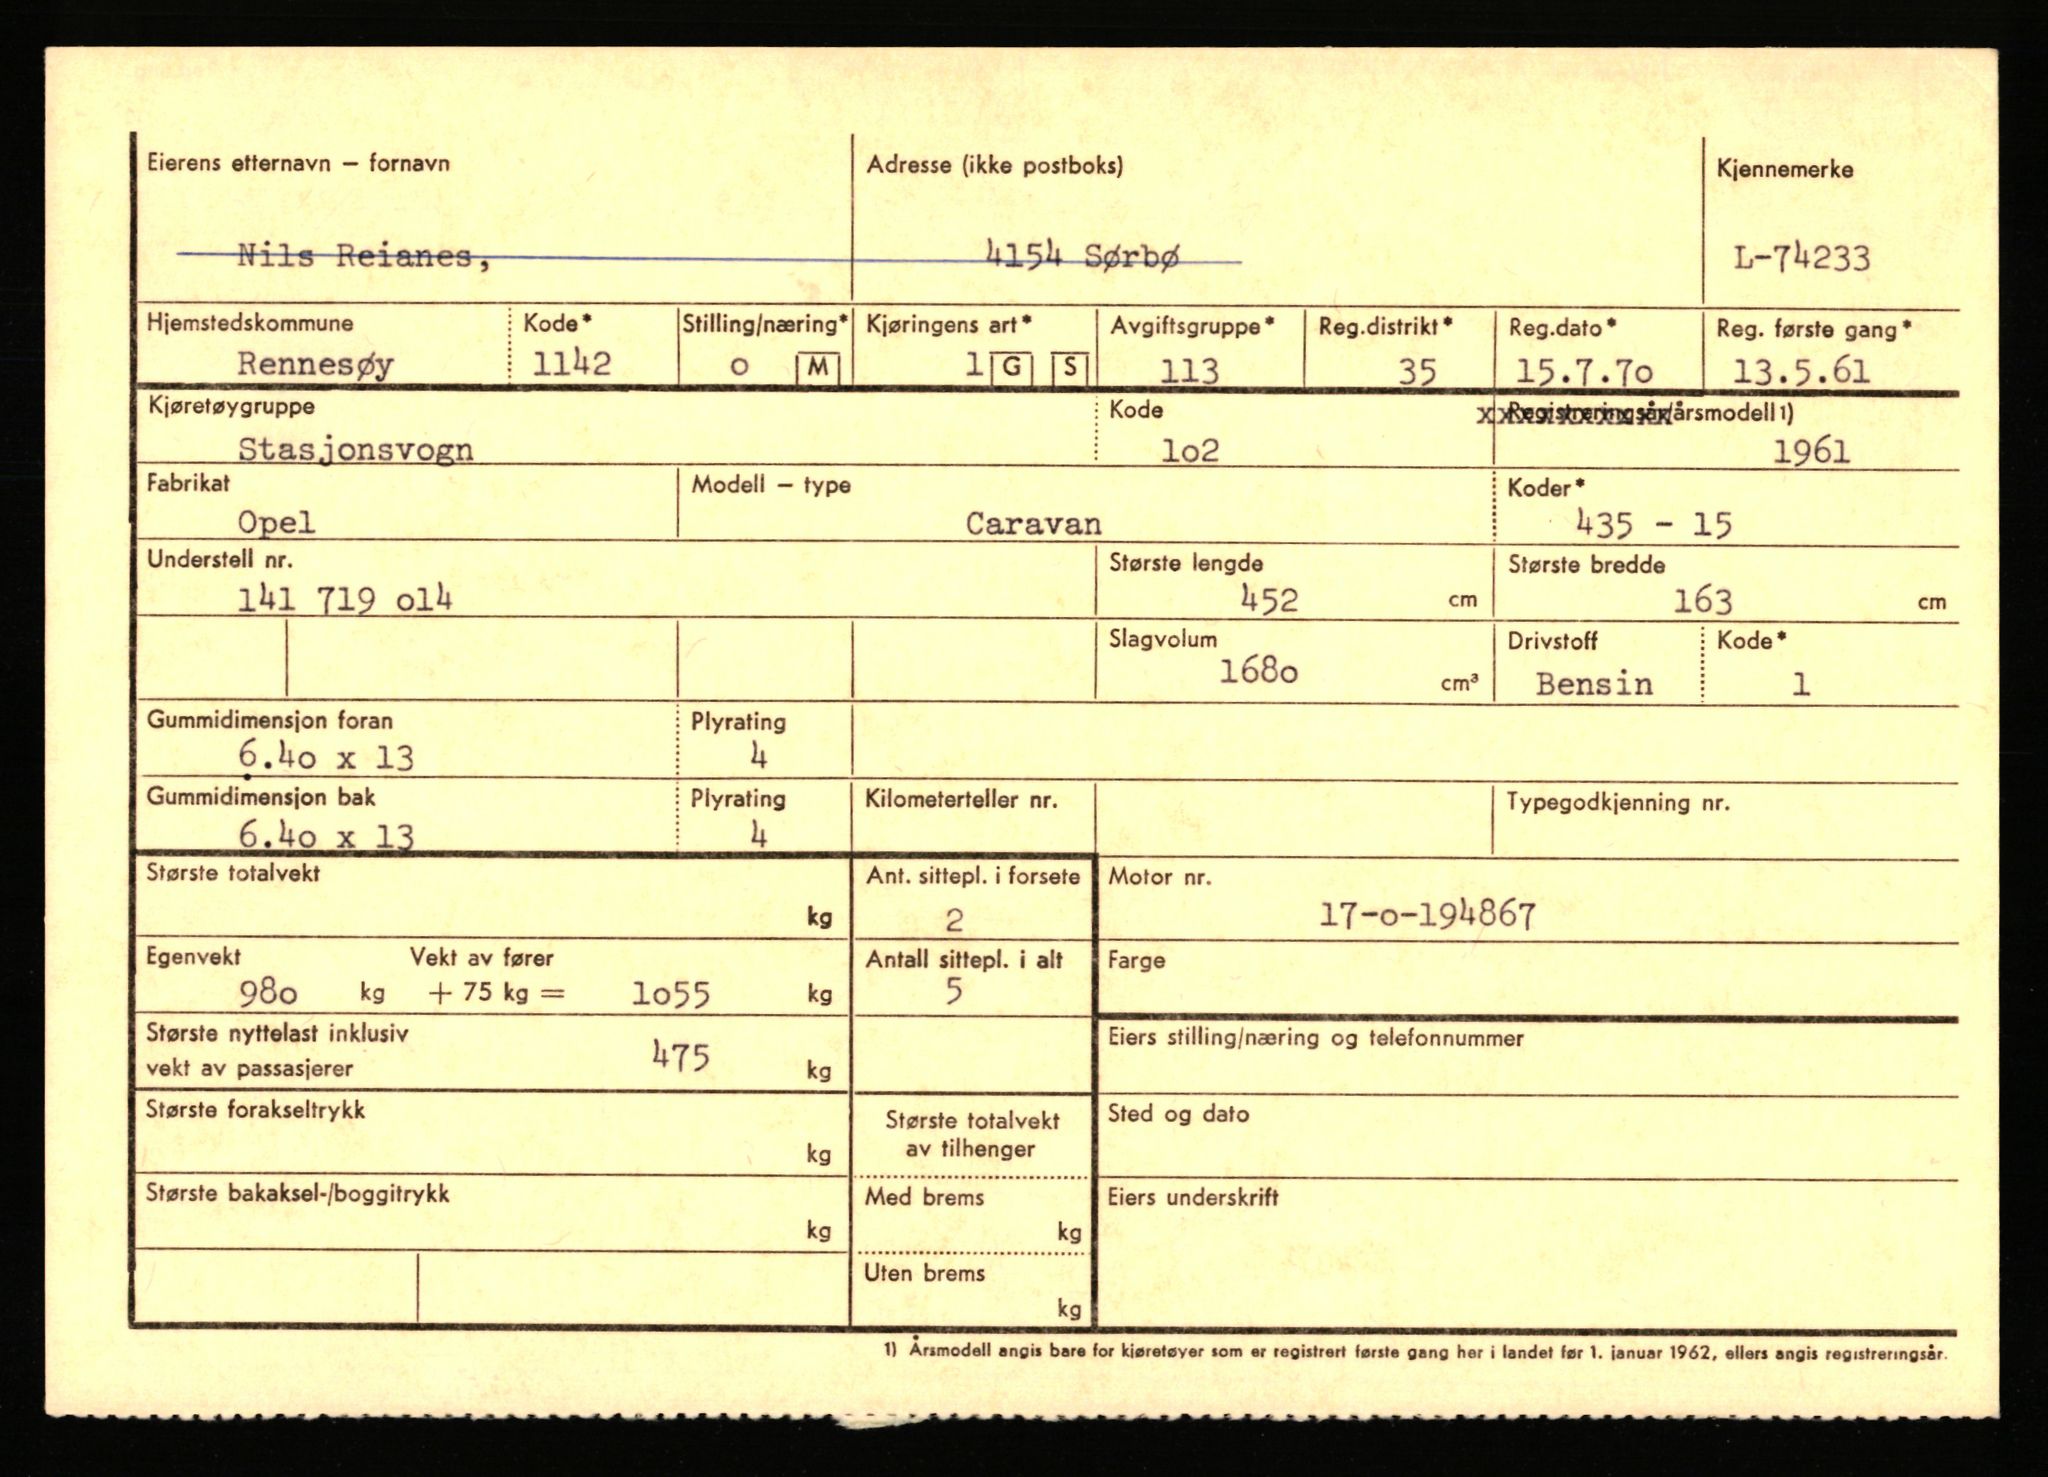 Eierens etternavn – fornavn Adresse (ikke postboks) Kjennemerke
Nils Reianes, 4154 Sørbø L-74233
Hjemstedskommune Kode* Stilling/næring* Kjøringens art* Avgiftsgruppe* Reg.distrikt* Reg.dato* Reg. første gang*
Rennesøy 1142 o M 1 G S 113 35 15.7.7o 13.5.61
Kjøretøygruppe Kode Registreringsår/årsmodell 1)
Stasjonsvogn 1o2 1961
Fabrikat Modell – type Koder*
Opel Caravan 435 - 15
Understell nr. Største lengde Største bredde
141 719 o14 452 cm 163 cm
Slagvolum Drivstoff Kode*
168o cm³ Bensin 1
Gummidimensjon foran Plyrating
6.4o x 13 4
Gummidimensjon bak Plyrating Kilometerteller nr. Typegodkjenning nr.
6.4o x 13 4
Største totalvekt Ant. sittepl. i forsete Motor nr.
kg 2 17-o-194867
Egenvekt Vekt av fører Antall sittepl. i alt Farge
98o kg + 75 kg = 1o55 kg 5
Største nyttelast inklusiv Eiers stilling/næring og telefonnummer
vekt av passasjerer 475 kg
Største forakseltrykk Største totalvekt Sted og dato
kg av tilhenger
Største bakaksel-/boggitrykk Med brems Eiers underskrift
kg kg
Uten brems
kg
1) Årsmodell angis bare for kjøretøyer som er registrert første gang her i landet før 1. januar 1962, ellers angis registreringsår.